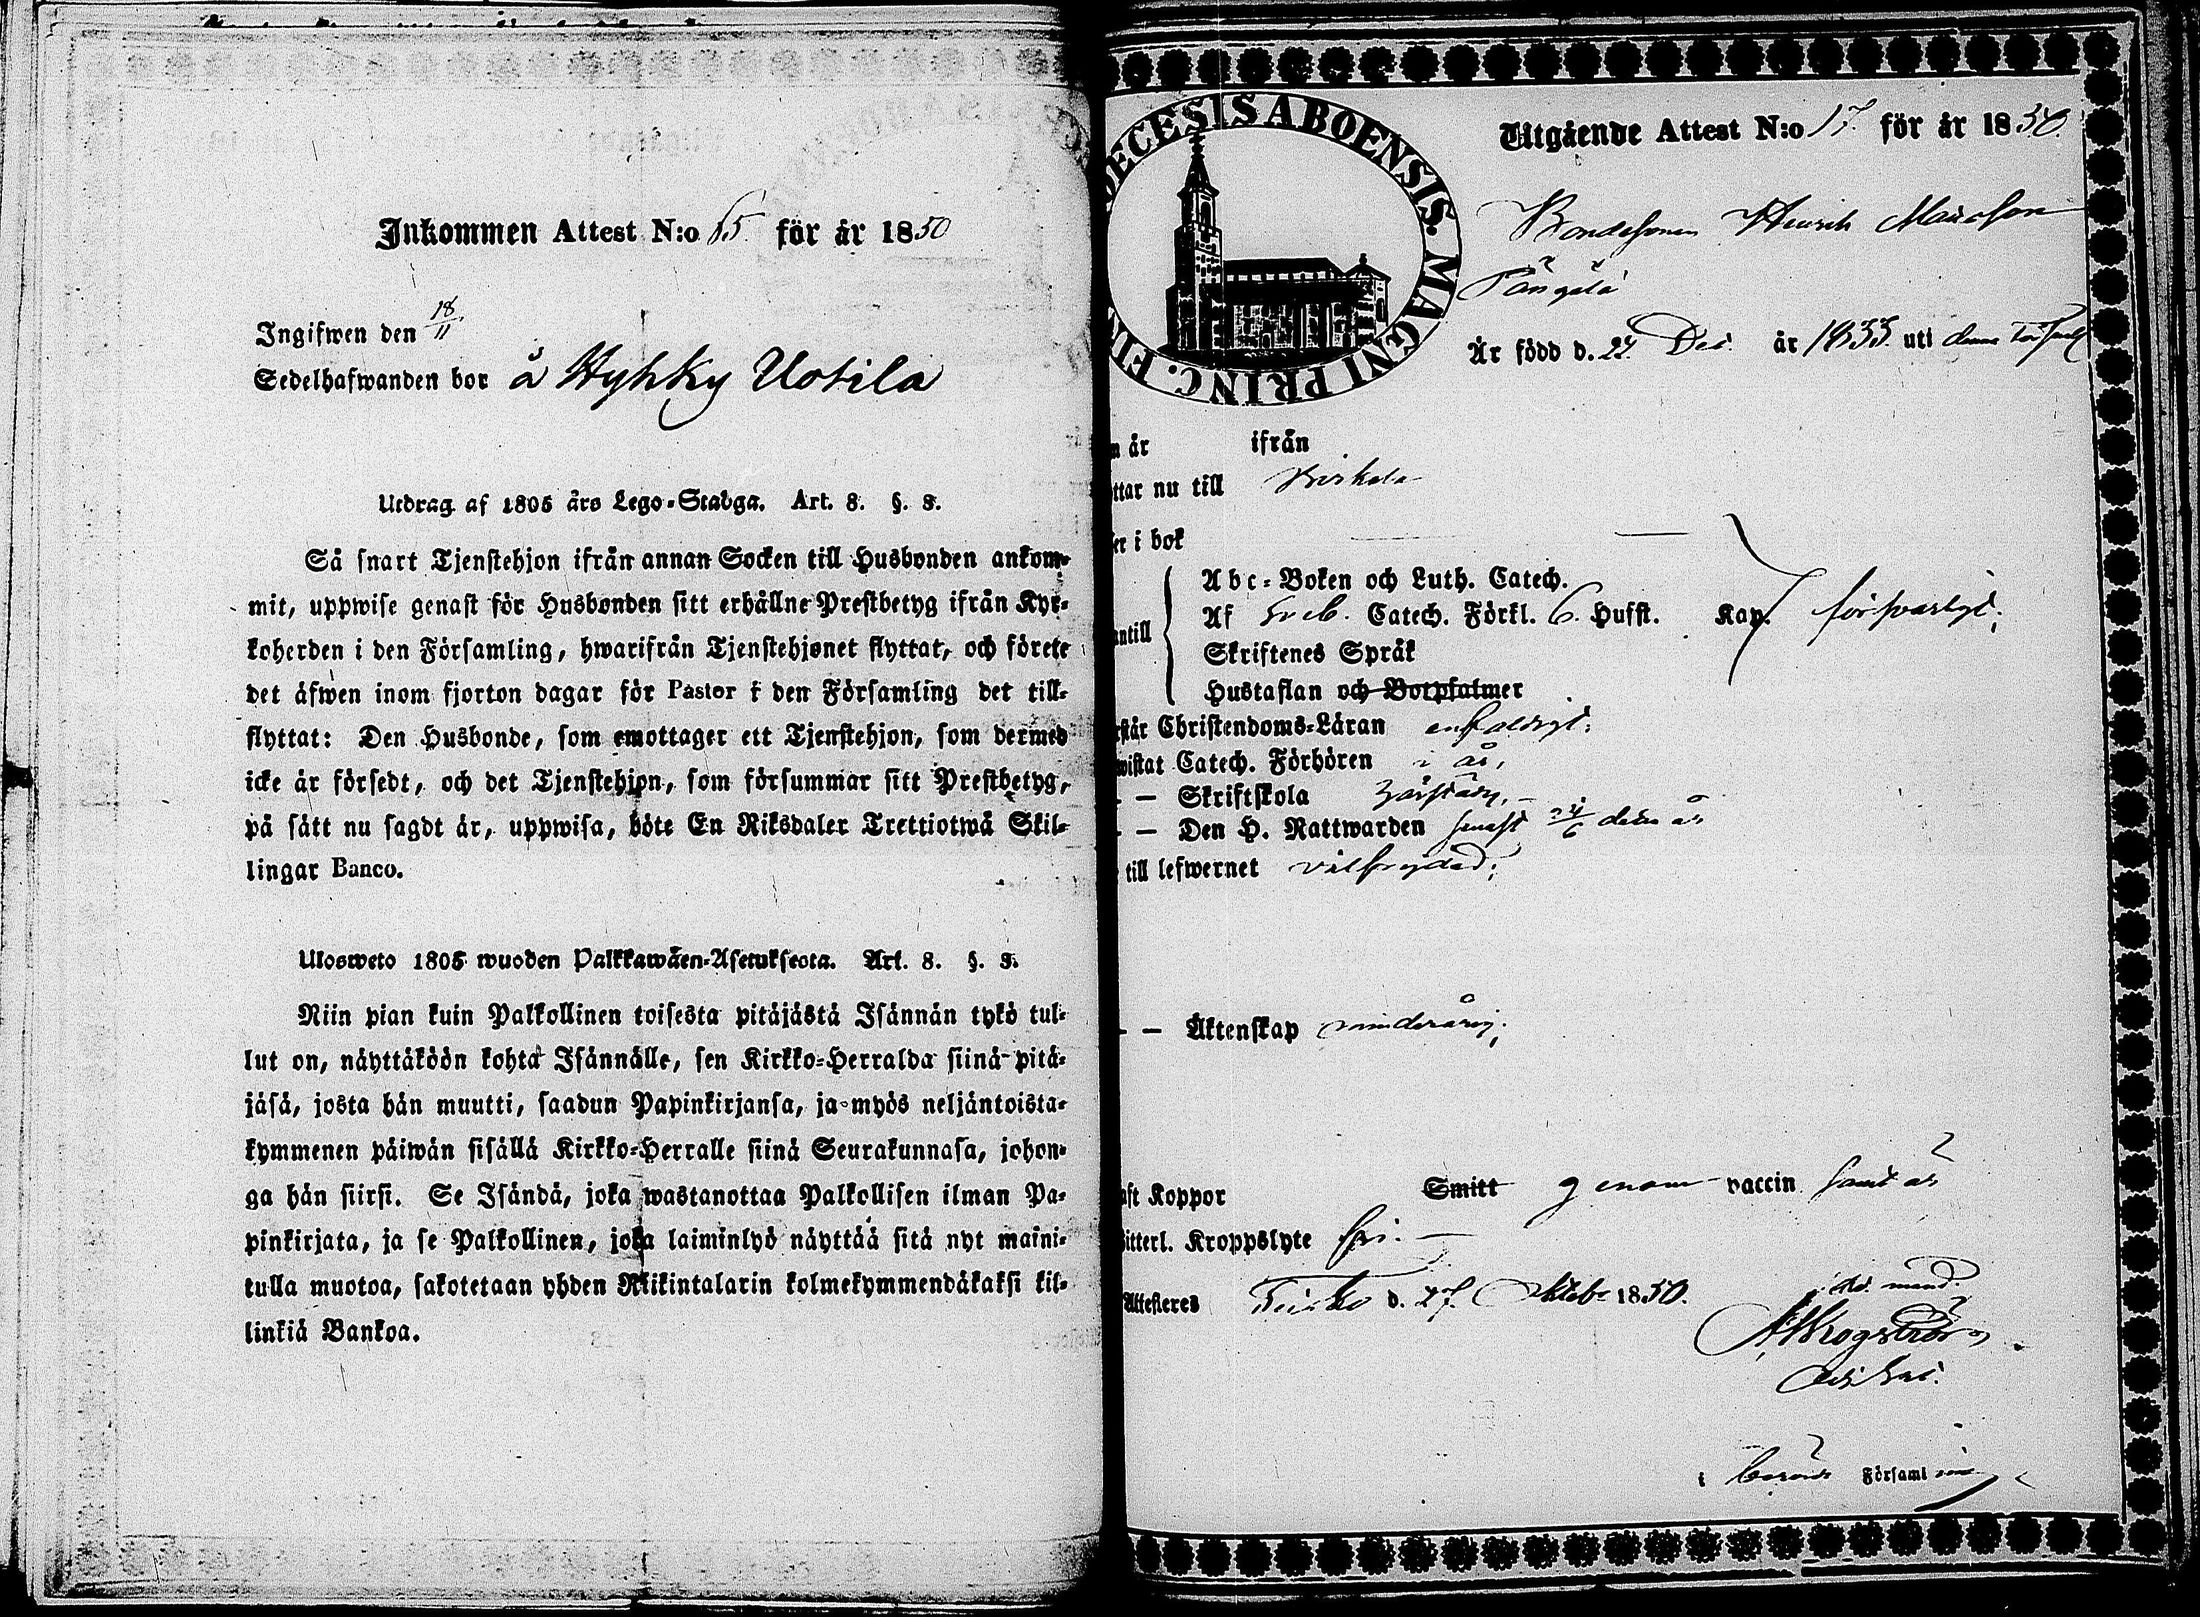 Inkommen Attest N:o 65. för år 1850
Ingifwen den 18/11
Sedelhafwanden bor å Hyhky Uotila
Utdrag af 1805 års Lego-Stadga. Art. 8. §. 8.
Så snart Tjenstehjon ifrån annan Socken till Husbonden ankom-
mit, uppwise genast för Husbonden sitt erhållne Prestbetyg ifrån Kyr-
koherden i den Församling, hwarifrån Tjenstehjonet flyttat, och förete
det äfwen inom fjorton dagar för Pastor i den Församling det till-
flyttat: Den Husbonde, som emottager ett Tjenstehjon, som dermed
icke är försedt, och det Tjenstehjon, som försummar sitt Prestbetyg,
på sätt nu sagdt är, uppwisa, böte En Riksdaler Trettiotwå Skil-
lingar Banco.
Ulosweto 1805 wuoden Palkkawäen-Asetuksesta. Art. 8. §. 8.
Niin pian kuin Palkollinen toisesta pitäjästä Isännän tykö tul-
lut on, näyttäköön kohta Isännälle, sen Kirkko-Herralda siinä pitä-
jäsä, josta hän muutti, saadun Papinkirjansa, ja myös neljäntoista-
kymmenen päiwän sisällä Kirkko-Herralle siinä Seurakunnasa, johon-
ga hän siirsi. Se Isändä, joka wastanottaa Palkollisen ilman Pa-
pinkirjata, ja se Palkollinen, joka laiminlyö näyttää sitä nyt maini-
tulla muotoa, sakotetaan yhden Riikintalarin kolmekymmendäkaksi kil-
linkiä Bankoa.
DECESIS ABOENSIS. MAGNI PRINC. FIN
Utgående Attest N:o 17. för år 1850.
Bondesonen Henrik Matsson
Pängälä
Är född d. 22 Dec. år 1833. uti denna Förs
år ifrån
ttar nu till Birkala
er i bok
Abc-Boken och Luth. Catech.
Af Sveb. Catech. Förkl. 6. Hufst. Kap. försvarligt.
ntill
Skriftenes Språk
Hustaflan och Botpsalmer
rstår Christendoms-Läran enfaldigt.
wistat Catech. Förhören i år,
— Skriftskola
— Den H. Nattwarden senast 24/6 detta år
till lefwernet välfrejdad;
— Äktenskap minderårig;
ft Koppor Smitt genom vaccin samt är
itterl. Kroppslyte fri.
Attesteres Teisko d. 27. Oktob. 1850.
mand.
i Församl